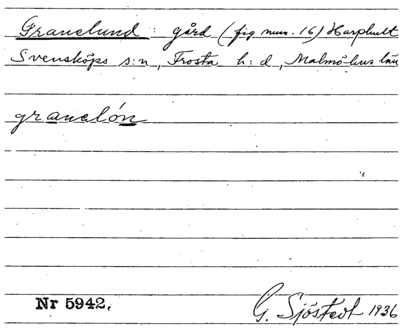 Granelund gård (fig num. 16) Harphult
Svensköps s:n, Frosta h:d, Malmöhus län
granelón
Nr 5942.
G. Sjöstedt 1936